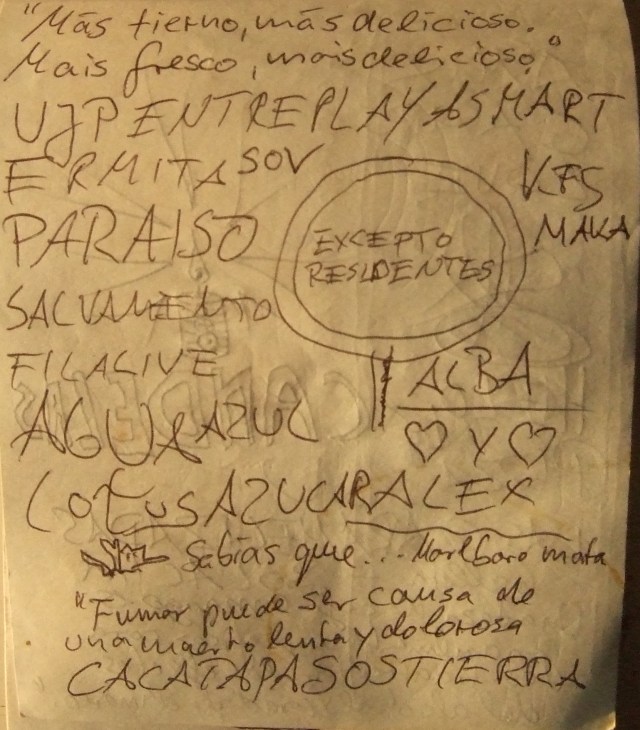 "Más tierno, más delicioso.
Mais fresco, mais delicioso."
UJP ENTREPLAYASMART
ERMITA SOV
VFS
PARAISO
MAKA
EXCEPTO
RESIDENTES
SALVAMENTO
FILALIVE
ALBA
AGUA AZUL
♡ Y ♡
Lotus AZUCAR ALEX
Sabías que... Marlboro mata
"Fumar puede ser causa de
una muerte lenta y dolorosa
CACATAPASOSTIERRA